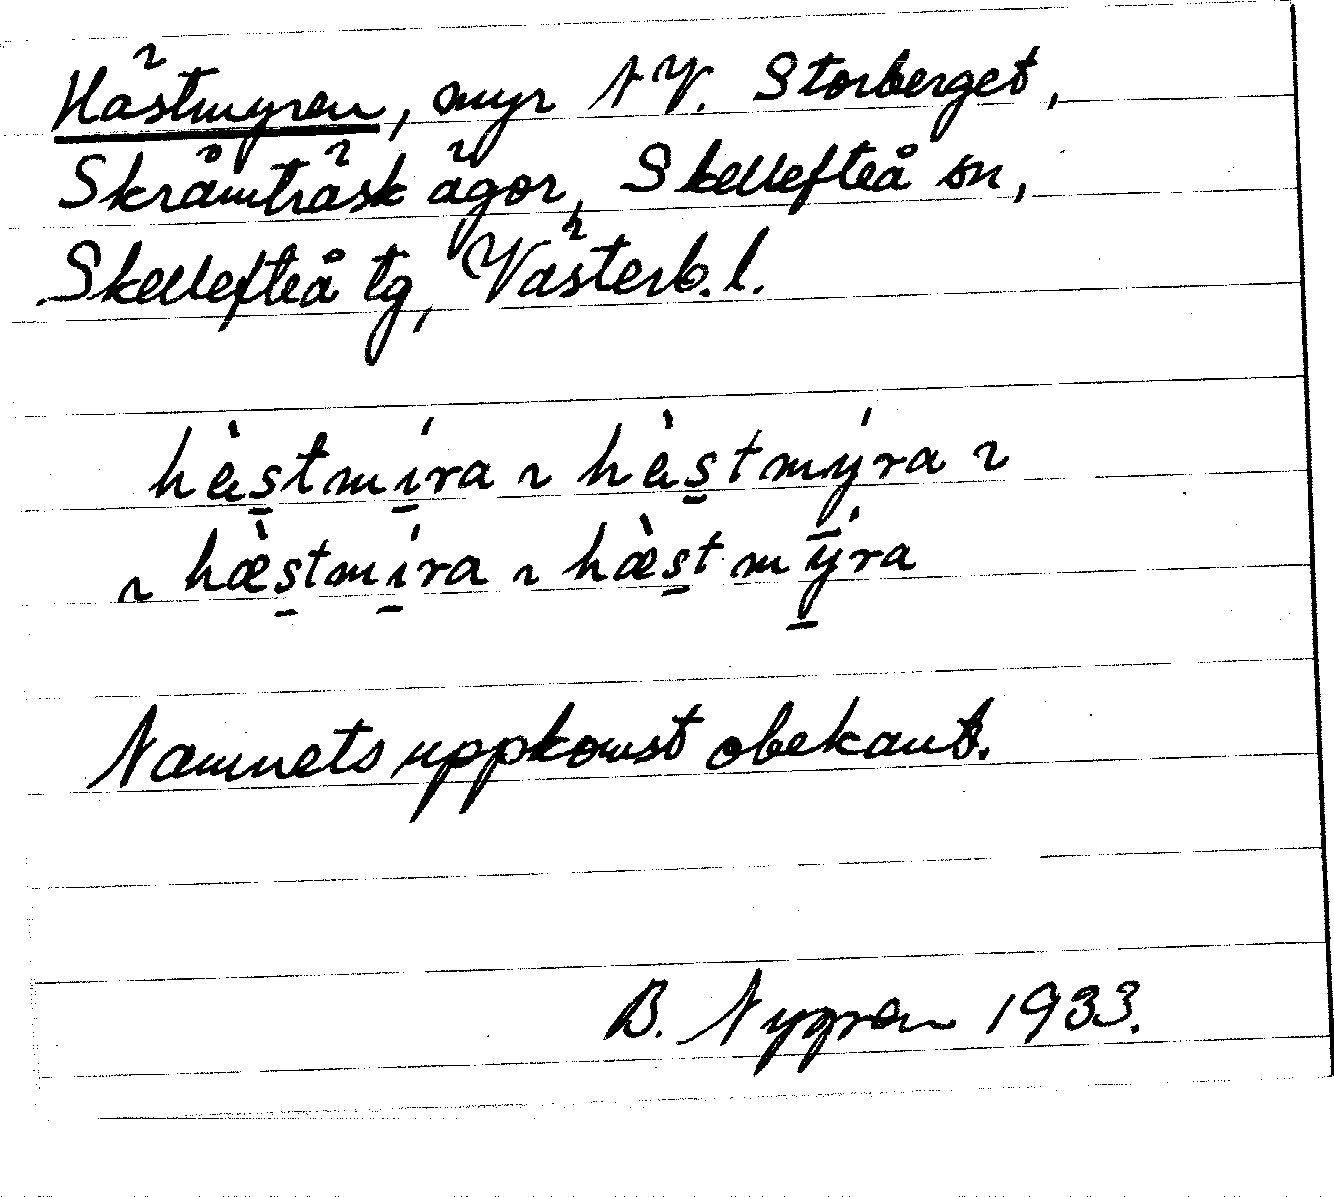 Hästmyren, myr NV. Storberget,
Skråmträsk ägor, Skellefteå sn,
Skellefteå tg, Västerb. l.
hàs̱tmí̱ra ~ hàs̱tmý̱ra ~
~ hæ̀s̱tmí̱ra ~ hæ̀s̱tmý̱ra
Namnets uppkomst obekant.
B. Nygren 1933.